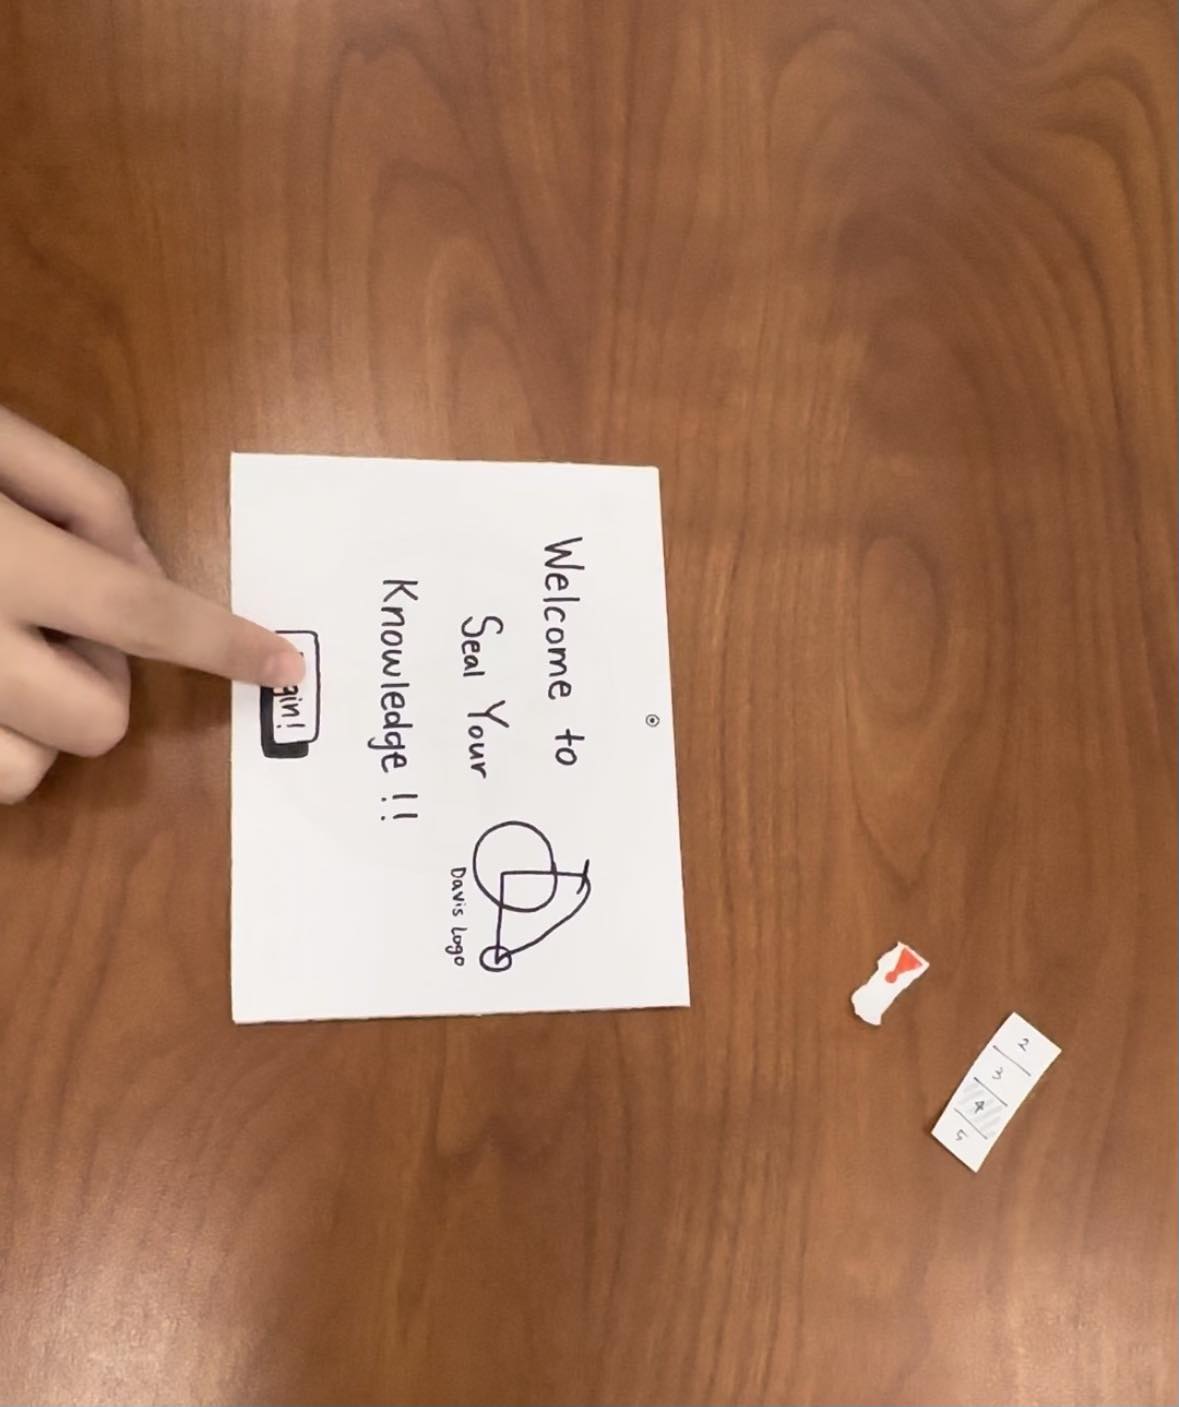 2
3
4
5
Welcome to
Seal Your
Knowledge !!
Davis Logo